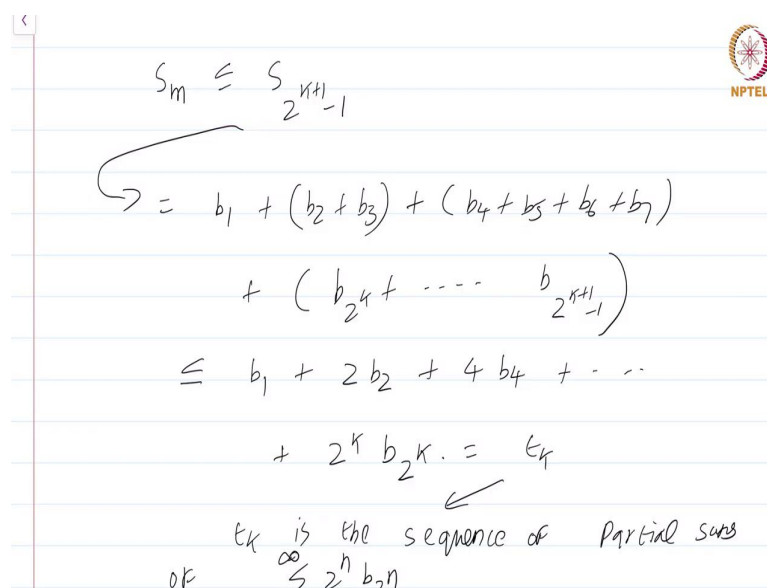 NPTEL
S_m ≤ S_{2^{k+1}-1}
= b_1 + (b_2 + b_3) + (b_4 + b_5 + b_6 + b_7)
+ (b_{2^k} + ---- b_{2^{k+1}-1})
≤ b_1 + 2 b_2 + 4 b_4 + - ..
+ 2^k b_{2^k}. = t_k
t_k is the sequence of Partial sums
of ∞ Σ 2^n b_{2^n}